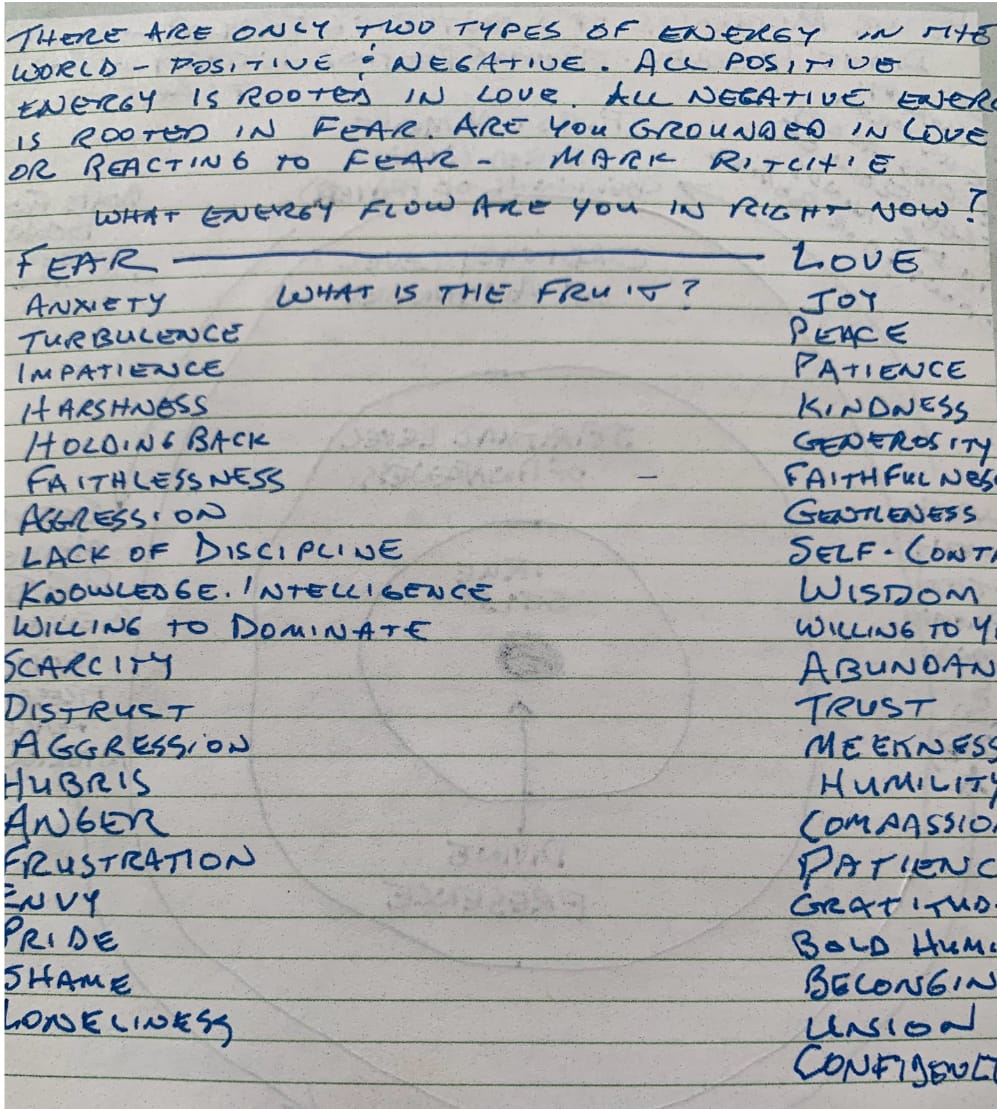 THERE ARE ONLY TWO TYPES OF ENERGY IN THE
WORLD - POSITIVE & NEGATIVE. ALL POSITIVE
ENERGY IS ROOTED IN LOVE. ALL NEGATIVE ENER
IS ROOTED IN FEAR. ARE YOU GROUNDED IN LOVE
OR REACTING TO FEAR - MARK RITCHIE
WHAT ENERGY FLOW ARE YOU IN RIGHT NOW?
FEAR — LOVE
ANXIETY WHAT IS THE FRUIT? JOY
TURBULENCE PEACE
IMPATIENCE PATIENCE
HARSHNESS KINDNESS
HOLDING BACK GENEROSITY
FAITHLESSNESS - FAITHFULNES
AGGRESSION GENTLENESS
LACK OF DISCIPLINE SELF-CONT
KNOWLEDGE. INTELLIGENCE WISDOM
WILLING TO DOMINATE WILLING TO Y
SCARCITY ABUNDAN
DISTRUST TRUST
AGGRESSION MEEKNESS
HUBRIS HUMILITY
ANGER COMPASSIO
FRUSTRATION PATIENC
ENVY GRATITUD
PRIDE BOLD HUM
SHAME BELONGIN
LONELINESS UNSION
CONFIDENCE